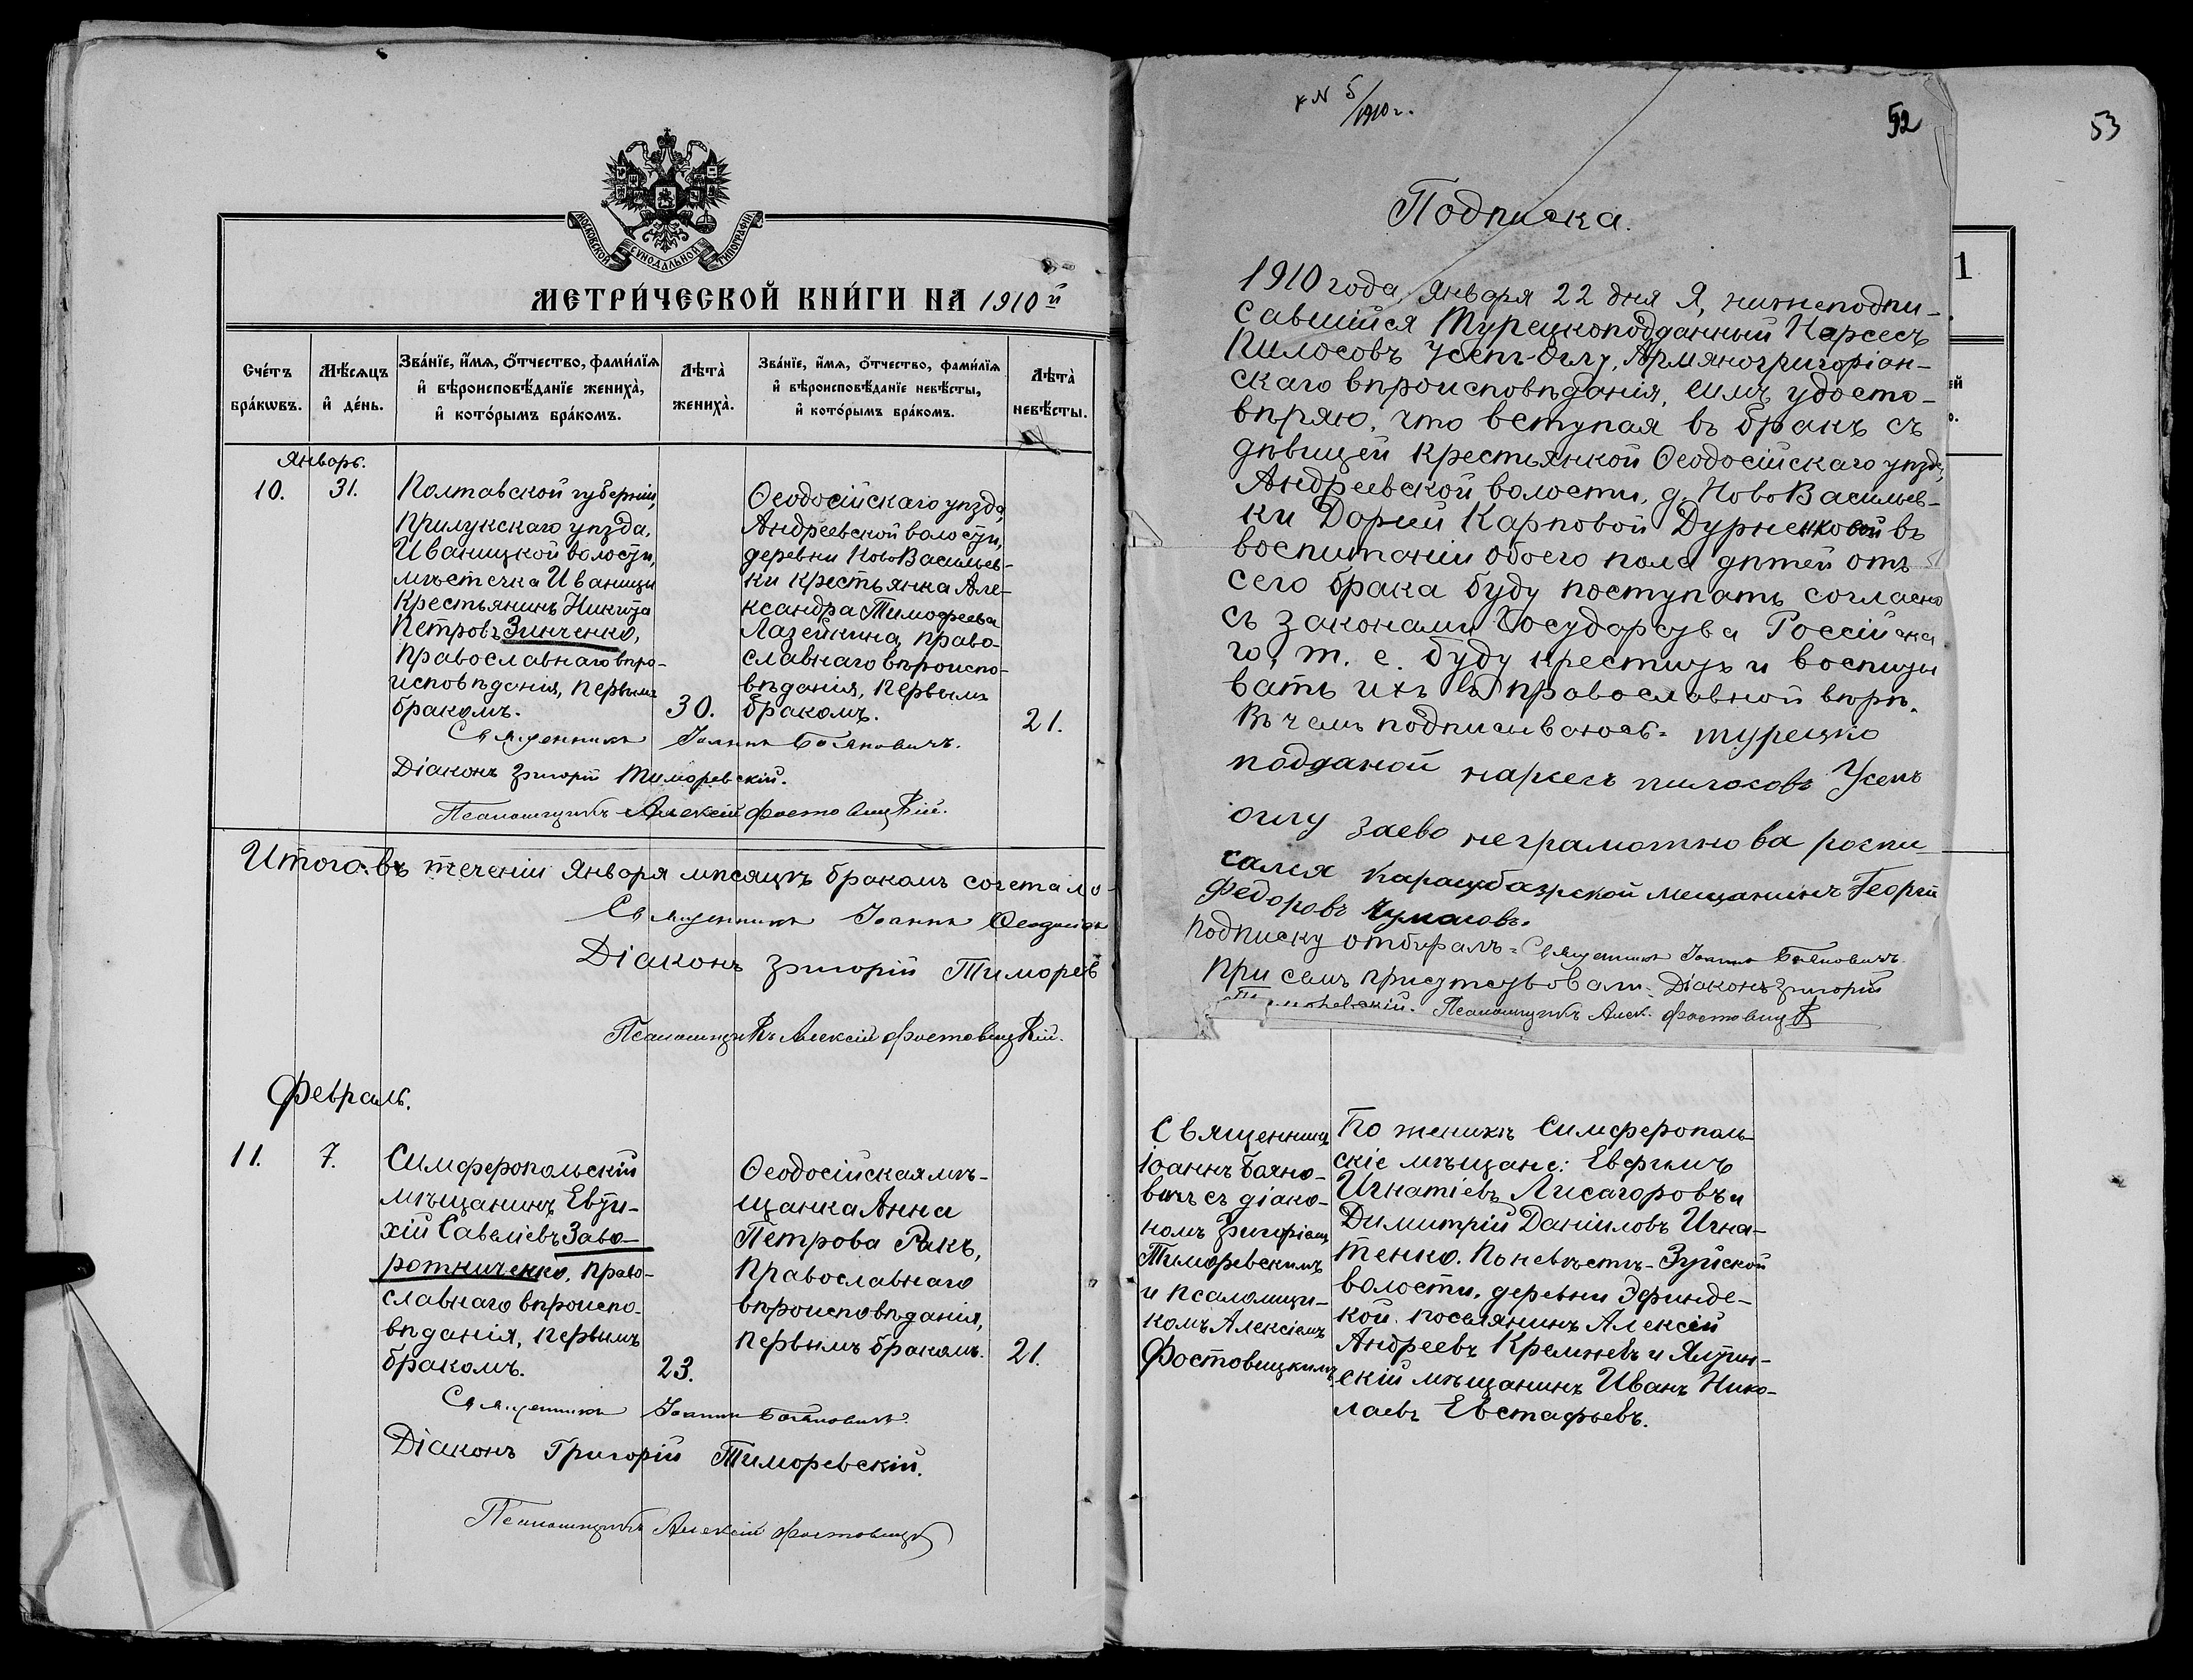 МОСКОВСКОЙ СѴНОДАЛЬНОЙ ТИПОГРАФІИ
МЕТРИ́ЧЕСКОЙ КНИ́ГИ НА 1910й
Сче́тъ бра́кωвъ.
Мѣ́сяцъ и҆ де́нь.
Зва́нїе, и҆́мѧ, ѻ҆́тчество, фами́лїѧ
и҆ вѣроисповѣ́данїе жениха̀,
и҆ кото́рымъ бра́комъ.
Лѣта̀ жениха̀.
Зва́нїе, и҆́мѧ, ѻ҆́тчество, фами́лїѧ
и҆ вѣроисповѣ́данїе невѣ́сты,
и҆ кото́рымъ бра́комъ.
Лѣта̀ невѣ́сты.
Январь.
10. 31.
Полтавской губерніи,
Прилукскаго уѣзда,
Иваницкой волости,
мѣстечка Иваницы
крестьянинъ Никита
Петровъ Зинченко,
православнаго вѣро-
исповѣданія, первымъ
бракомъ.
30.
Ѳеодосійскаго уѣзда,
Андреевской волости,
деревни НовоВасильев-
ки крестьянка Але-
ксандра Тимофеева
Лазейкина, право-
славнаго вѣроиспо-
вѣданія, первымъ
бракомъ.
21.
Священникъ Іоаннъ Баяновичъ.
Діаконъ Григорій Тиморевскій.
Псаломщикъ Алексій Фостовицкій.
Итого въ теченіи Января мѣсяцѣ бракомъ сочетало-
Священникъ Іоаннъ
Діаконъ Григорій Тиморев
Псаломщикъ Алексій Фостовицкій.
Февраль.
11. 7.
Симферопольскій
мѣщанинъ Евти-
хій Савеліевъ Заво-
ротниченко, право-
славнаго вѣроиспо-
вѣданія, первымъ
бракомъ.
23.
Ѳеодосійская мѣ-
щанка Анна
Петрова Ракъ,
православнаго
вѣроисповѣданія,
первымъ бракомъ.
21.
Священникъ Іоаннъ Баяновичъ.
Діаконъ Григорій Тиморевскій.
Псаломщикъ Алексій Фостовицк
к N 5/1910 г.
52
53
1
Подписка.
1910 года, Января 22 дня Я, нижеподпи-
савшійся Турецкоподданный Нарсесъ
Пилосовъ Усепъ-Оглу, Армяногригоріан-
скаго вѣроисповѣданія, симъ удосто-
вѣряю, что вступая въ бракъ съ
дѣвицей крестьянкой Ѳеодосійскаго уѣзда,
Андреевской волости, д. НовоВасильев-
ки Дарьей Карповой Дурненковой въ
воспитаніи обоего пола дѣтей отъ
сего брака буду поступать согласно
съ законами Государства Россійска
го, т. е. буду крестить и воспиты
вать ихъ въ православной вѣрѣ.
Въ чемъ подписываюсь- турецко
поддоной нарсесъ пилосовъ Усепъ
оглу заево неграмотнова роспи
сался карасубазрской мещанинъ Георгій
Федоровъ Чумаковъ.
Подписку отбиралъ- Священникъ Іоаннъ Баяновичъ.
При семъ присутствовали: Діаконъ Григорій
Тиморевскій. Псаломщикъ Алек. Фостовицк
Священникъ
Іоаннъ Баяно-
вичъ съ діако-
номъ Григоріемъ
Тиморевскимъ
и псаломщи-
комъ Алексіемъ
Фостовицкимъ.
По женихѣ Симферополь-
скіе мѣщане: Евфимъ
Игнатіевъ Лисагоровъ и
Димитрій Даніиловъ Игна-
тенко. По невѣстѣ- Зуйской
волости, деревни Эфинде-
кой, поселянинъ Алексій
Андреевъ Кремневъ и Ялтин-
скій мѣщанинъ Иванъ Нико-
лаевъ Евстафьевъ.